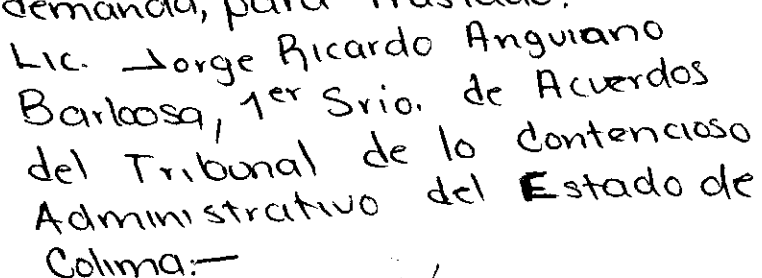 demanda, para traslado.
Lic. Jorge Ricardo Anguiano
Barbosa, 1er Srio. de Acuerdos
del Tribunal de lo Contencioso
Administrativo del Estado de
Colima.—